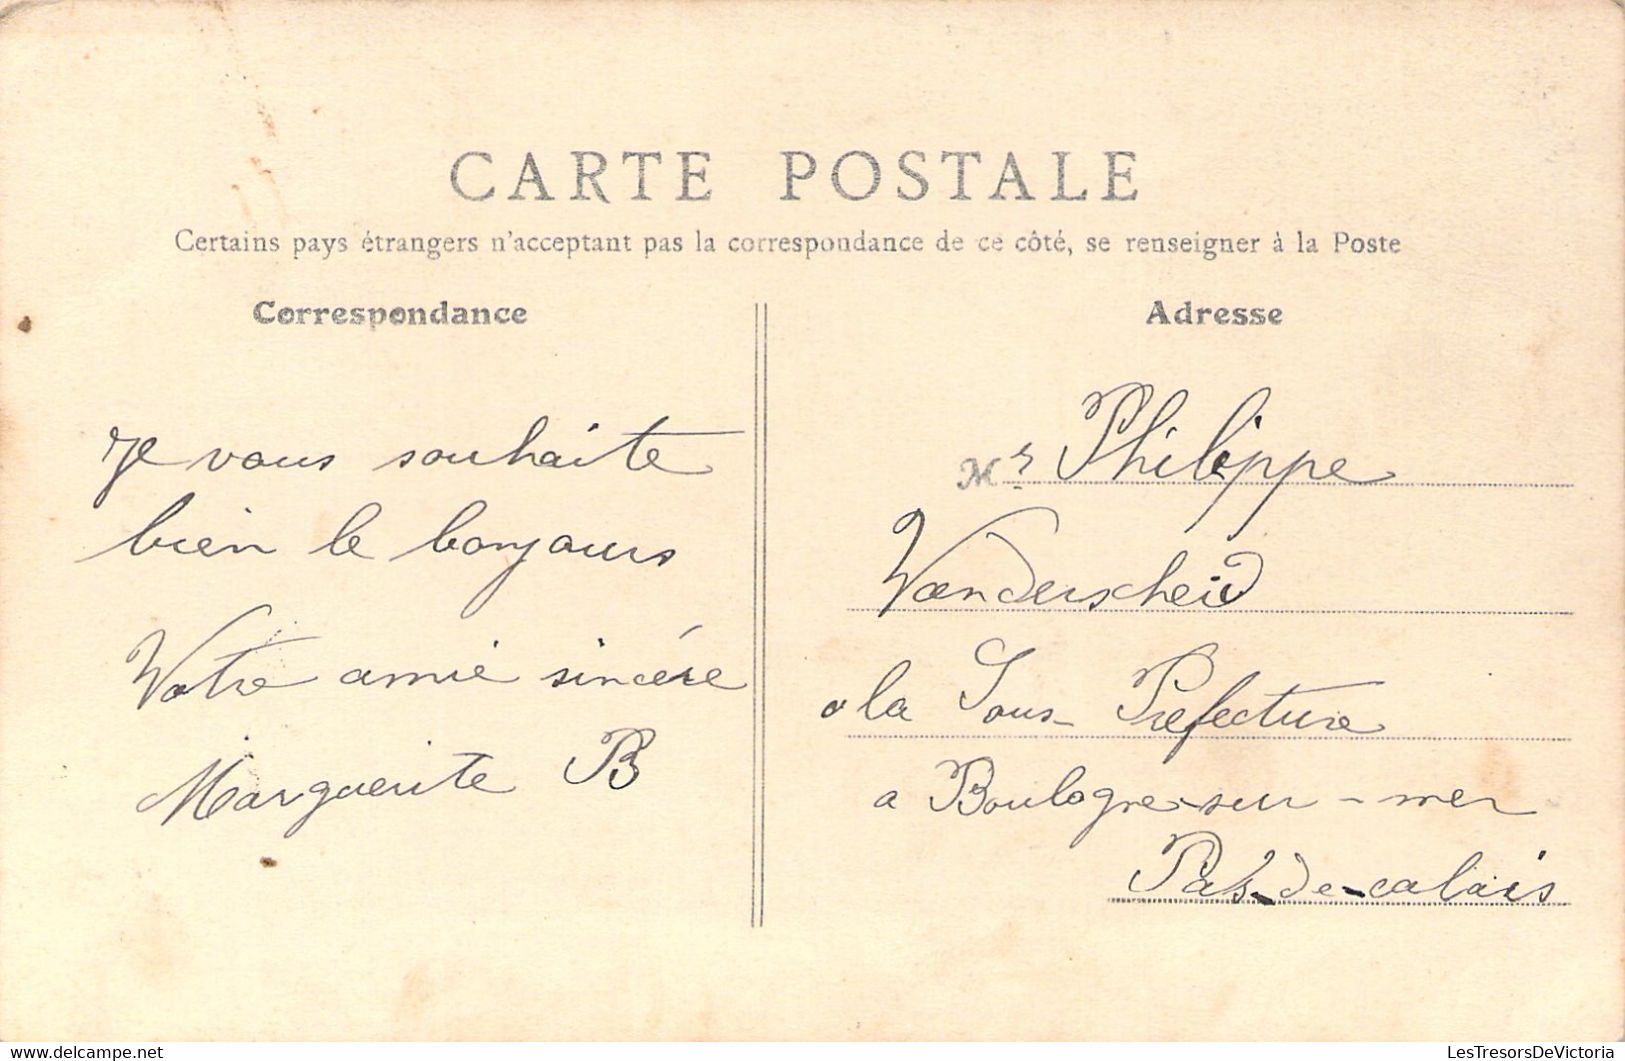 CARTE POSTALE
Certains pays étrangers n'acceptant pas la correspondance de ce côté, se renseigner à la Poste
Correspondance
Je vous souhaite
bien le bonjours
Votre amie sincére
Marguerite B
Adresse
Mr Philippe
Vanderscheid
a la Sous-Prefecture
a Boulogne-sur-mer
Pas-de-calais
www.delcampe.net
LesTresorsDeVictoria